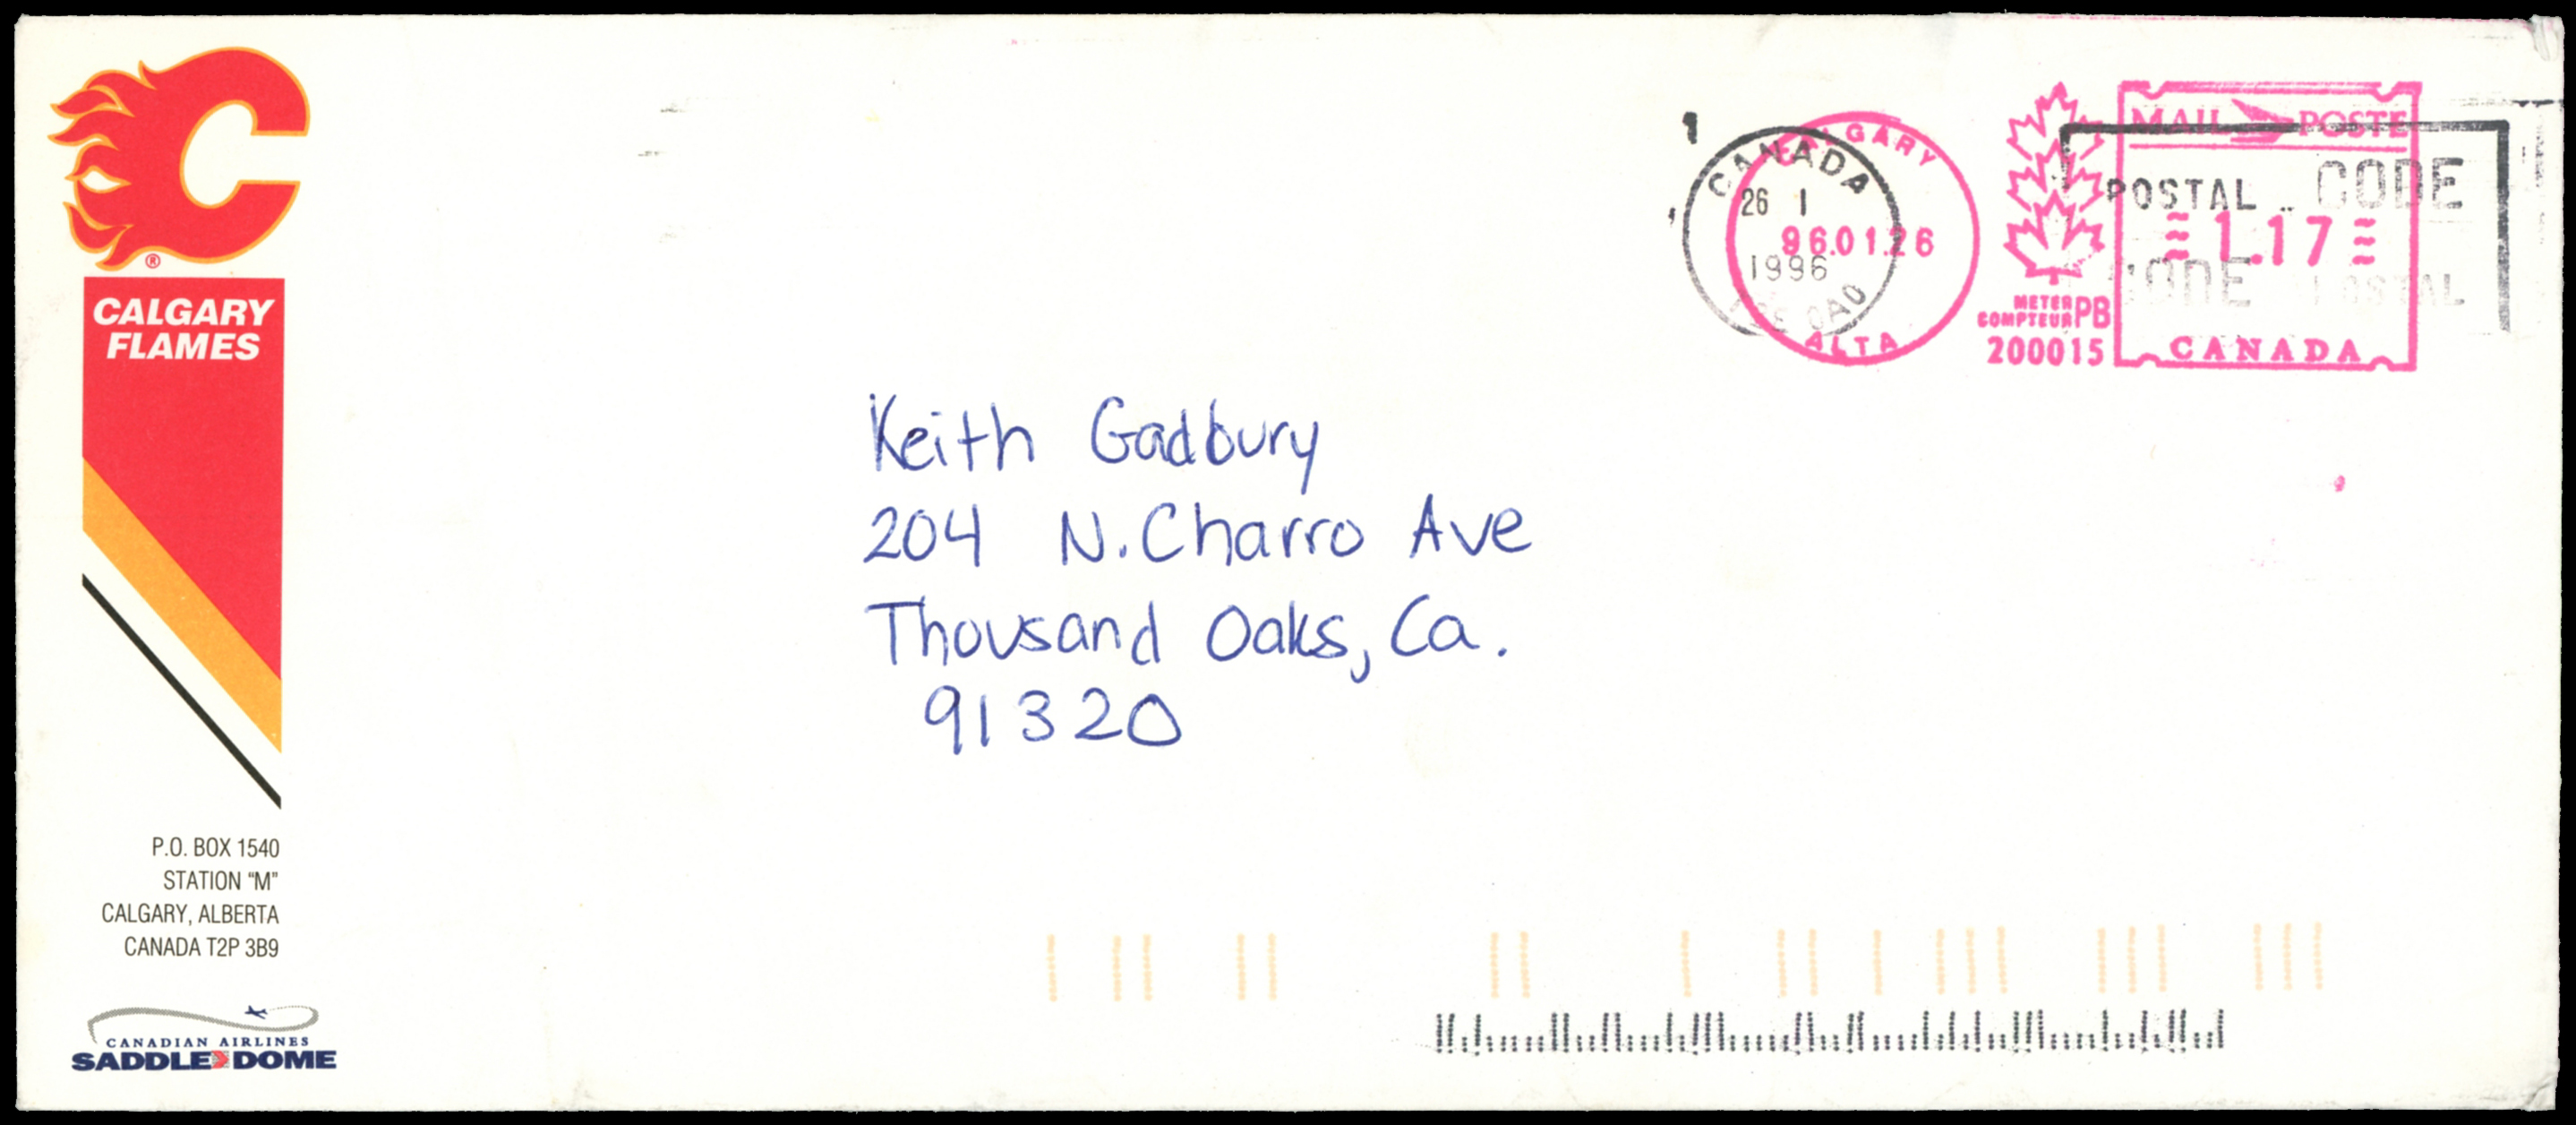 CALGARY
FLAMES
P.O. BOX 1540
STATION “M”
CALGARY, ALBERTA
CANADA T2P 3B9
CANADIAN AIRLINES
SADDLEDOME
CANADA
26 1
1996
CALGARY
96.01.26
ALTA
METER
COMPTEUR PB
200015
MAIL POSTE
1.17
CANADA
POSTAL CODE
CODE POSTAL
Keith Gadbury
204 N. Charro Ave
Thousand Oaks, Ca.
91320